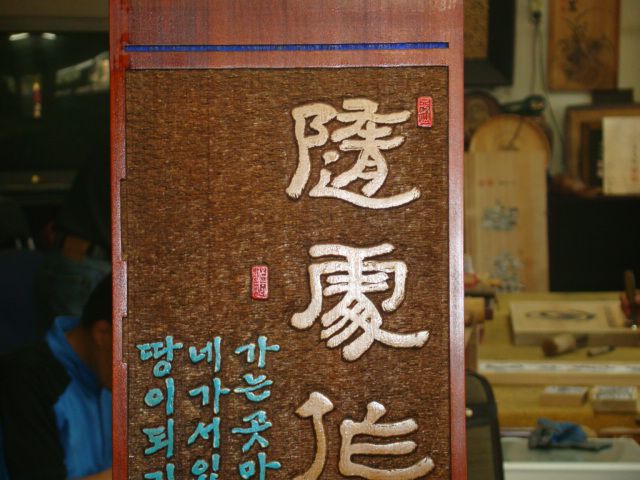 隨處作
가는곳마
네가서있
땅이되